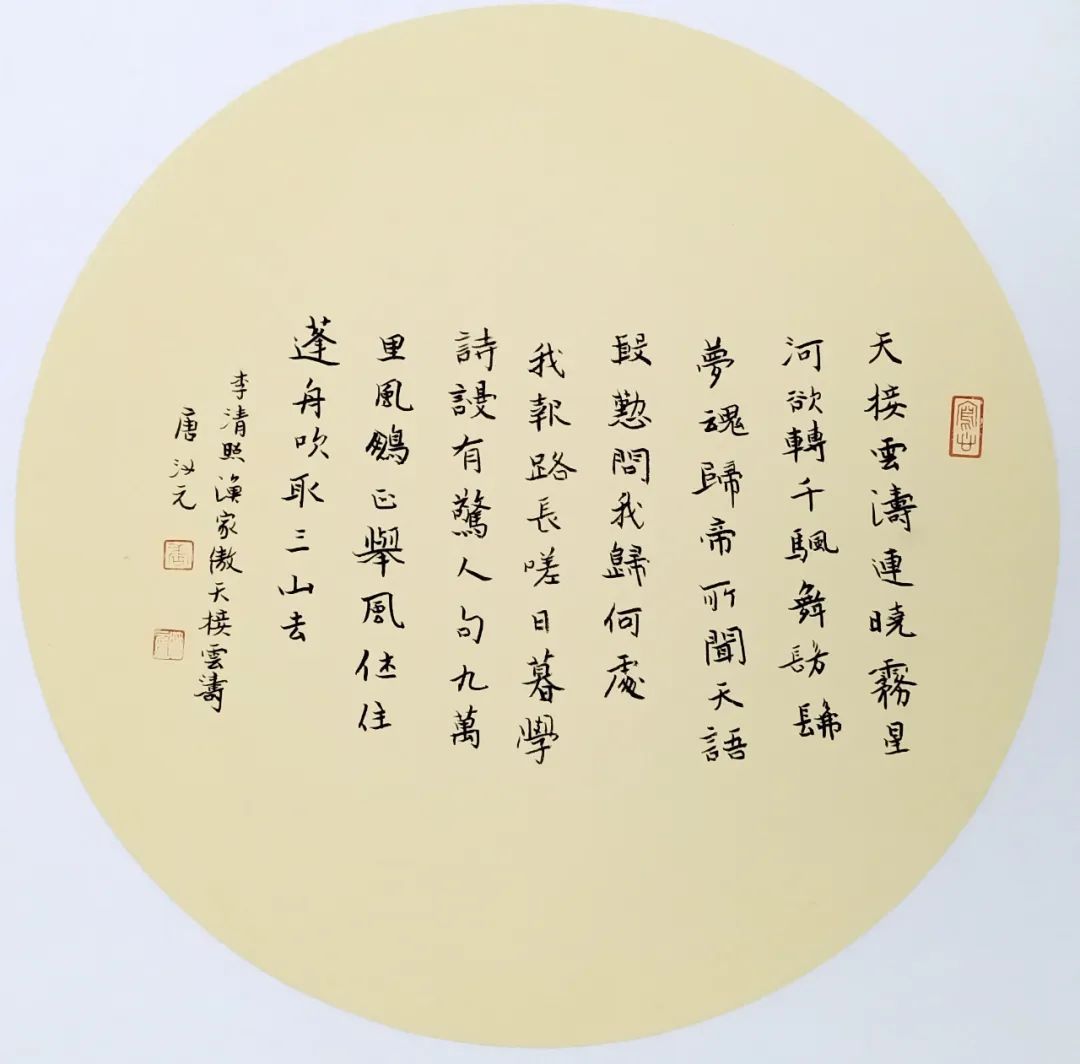 天接雲濤連曉霧星
河欲轉千颿舞髣髴
夢魂歸帝所聞天語
殷懃問我歸何處
我報路長嗟日暮學
詩謾有驚人句九萬
里風鵬正舉風休住
蓬舟吹取三山去
李清照漁家傲天接雲濤
唐元